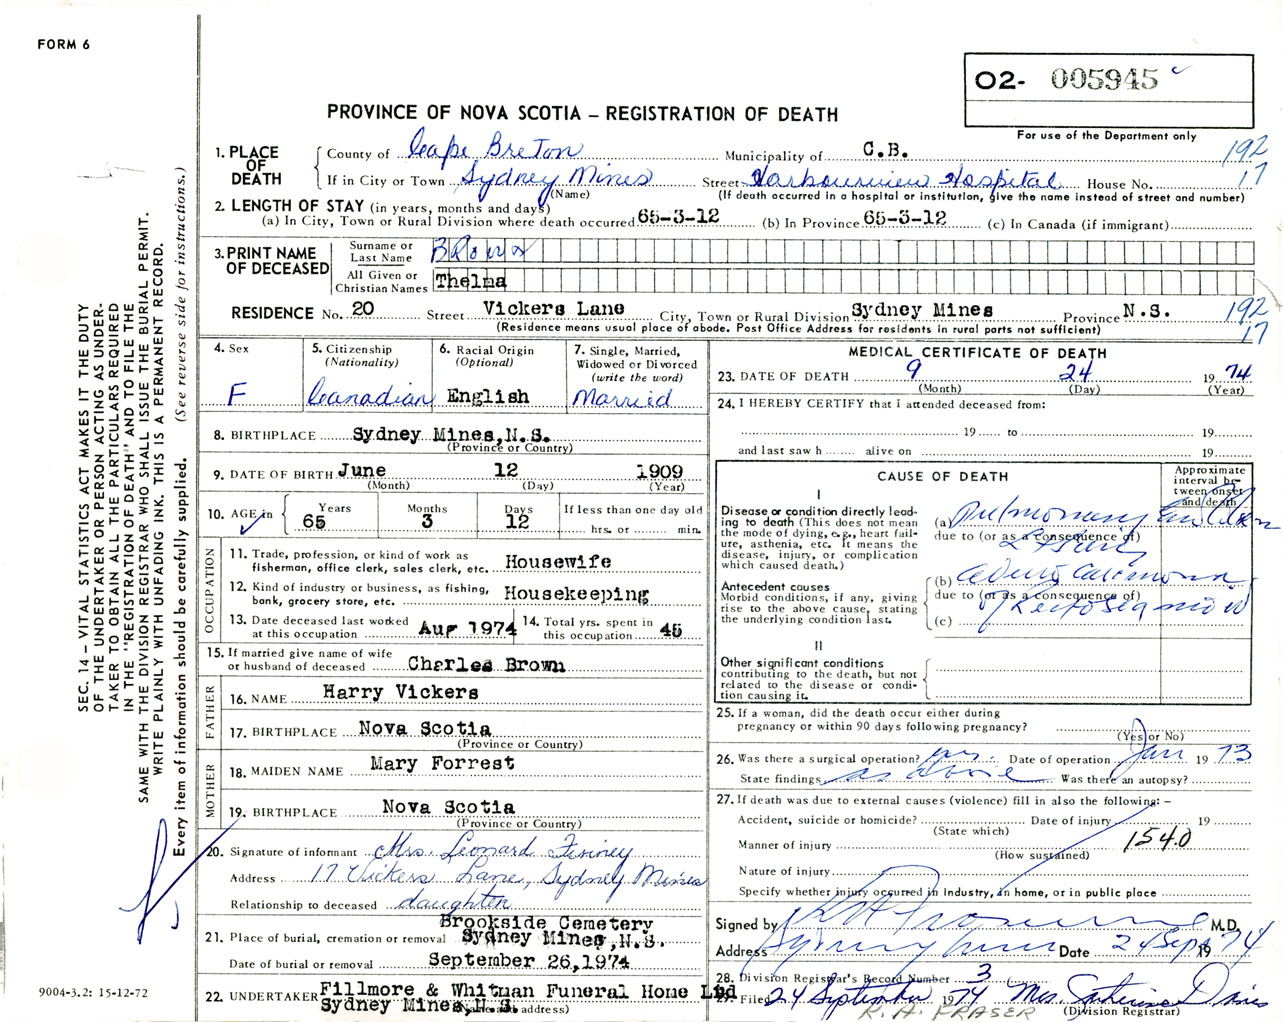 FORM 6
O2- 005945
For use of the Department only
PROVINCE OF NOVA SCOTIA – REGISTRATION OF DEATH
1. PLACE OF DEATH
County of Cape Breton Municipality of C.B. 192
If in City or Town Sydney Mines Street Harbourview Hospital House No. 17
(Name) (If death occurred in a hospital or institution, give the name instead of street and number)
2. LENGTH OF STAY (in years, months and days)
(a) In City, Town or Rural Division where death occurred 65-3-12 (b) In Province 65-3-12 (c) In Canada (if immigrant)
3. PRINT NAME OF DECEASED
Surname or Last Name Brown
All Given or Christian Names Thelma
RESIDENCE No. 20 Street Vickers Lane City, Town or Rural Division Sydney Mines Province N.S. 192
(Residence means usual place of abode. Post Office Address for residents in rural parts not sufficient) 17
4. Sex F
5. Citizenship (Nationality) Canadian
6. Racial Origin (Optional) English
7. Single, Married, Widowed or Divorced (write the word) Married
8. BIRTHPLACE Sydney Mines,N.S.
(Province or Country)
9. DATE OF BIRTH June 12 1909
(Month) (Day) (Year)
10. AGE in Years 65 Months 3 Days 12 If less than one day old hrs. or min.
OCCUPATION
11. Trade, profession, or kind of work as fisherman, office clerk, sales clerk, etc. Housewife
12. Kind of industry or business, as fishing, bank, grocery store, etc. Housekeeping
13. Date deceased last worked at this occupation Aug 1974
14. Total yrs. spent in this occupation 45
15. If married give name of wife or husband of deceased Charles Brown
FATHER
16. NAME Harry Vickers
17. BIRTHPLACE Nova Scotia
(Province or Country)
MOTHER
18. MAIDEN NAME Mary Forrest
19. BIRTHPLACE Nova Scotia
(Province or Country)
20. Signature of informant Mrs. Leonard
Address 17 Vickers Lane, Sydney Mines
Relationship to deceased daughter
21. Place of burial, cremation or removal Brookside Cemetery Sydney Mines,N.S.
Date of burial or removal September 26,1974
22. UNDERTAKER Fillmore & Whitman Funeral Home Ltd
Sydney Mines,N.S.
(Name and address)
MEDICAL CERTIFICATE OF DEATH
23. DATE OF DEATH 9 24 1974
(Month) (Day) (Year)
24. I HEREBY CERTIFY that I attended deceased from:
19 to 19
and last saw h alive on 19
CAUSE OF DEATH
Approximate interval between onset and death
I
Disease or condition directly leading to death (This does not mean the mode of dying, e.g., heart failure, asthenia, etc. It means the disease, injury, or complication which caused death.)
(a) Pulmonary
due to (or as a consequence of)
Antecedent causes
Morbid conditions, if any, giving rise to the above cause, stating the underlying condition last.
(b) Adeno carcinoma
due to (or as a consequence of)
of Rectosigmoid
(c)
II
Other significant conditions contributing to the death, but not related to the disease or condition causing it.
25. If a woman, did the death occur either during pregnancy or within 90 days following pregnancy?
(Yes or No)
26. Was there a surgical operation? yes. Date of operation Jan 1973
State findings as above Was there an autopsy?
27. If death was due to external causes (violence) fill in also the following: –
Accident, suicide or homicide? Date of injury 19
(State which)
Manner of injury 1540
(How sustained)
Nature of injury
Specify whether injury occurred in industry, in home, or in public place
Signed by M.D.
Address Sydney Mines Date 24 Sept 1974
28. Division Registrar's Record Number 3
Filed 24 September 1974 Mrs.
(Division Registrar)
R. A. FRASER
SEC. 14 – VITAL STATISTICS ACT MAKES IT THE DUTY
OF THE UNDERTAKER OR PERSON ACTING AS UNDER-
TAKER TO OBTAIN ALL THE PARTICULARS REQUIRED
IN THE "REGISTRATION OF DEATH" AND TO FILE THE
SAME WITH THE DIVISION REGISTRAR WHO SHALL ISSUE THE BURIAL PERMIT.
WRITE PLAINLY WITH UNFADING INK. THIS IS A PERMANENT RECORD.
Every item of information should be carefully supplied. (See reverse side for instructions.)
9004-3.2: 15-12-72